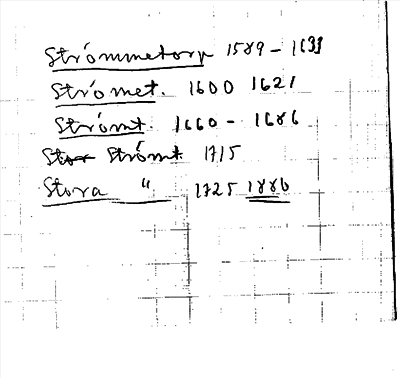 Strömmetorp 1589 - 1633
Strömet. 1600 1621
Strömt. 1660 - 1686
Stor Strömt 1715
Stora " 1725 1886